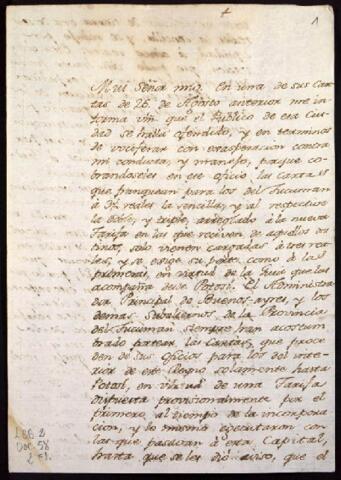 1
Mui Señor mio: en una de sus Car-
tas de 26. de Agosto anterior me in-
forma vm que el Publico de esa Ciu-
dad se halla ofendido, y en terminos
de vociferar con exasperacion contra
mi conducta, y manejo, porque co-
brandoseles en ese oficio las Cartas
que franquean para los del Tucuman
à reales la sencilla, y al respective
la doble, y triple, arreglado à la nueva
Tarifa en las que reciven de aquellos des-
tinos, solo vienen cargadas à tres rea-
les, y se exige su porte como à las
primeras, en virtud de la Guia que las
acompaña desde Potosi. El Administra-
dor Principal de Buenos-ayres, y los
demas Subalternos de la Provincia
del Tucuman siempre han acostum-
brado portear las Cartas, que proce-
den de sus oficios para los del inte-
rior de este Reyno solamente hasta
Potosi, en virtud de una Tarifa
dispuesta provisionalmente por el
primero al tiempo de la incorpora-
cion, y lo mismo executaron con
las que pasavan à esta Capital,
hasta que se les dió aviso, que el
LEG 2
DOC 58
2 Fs.